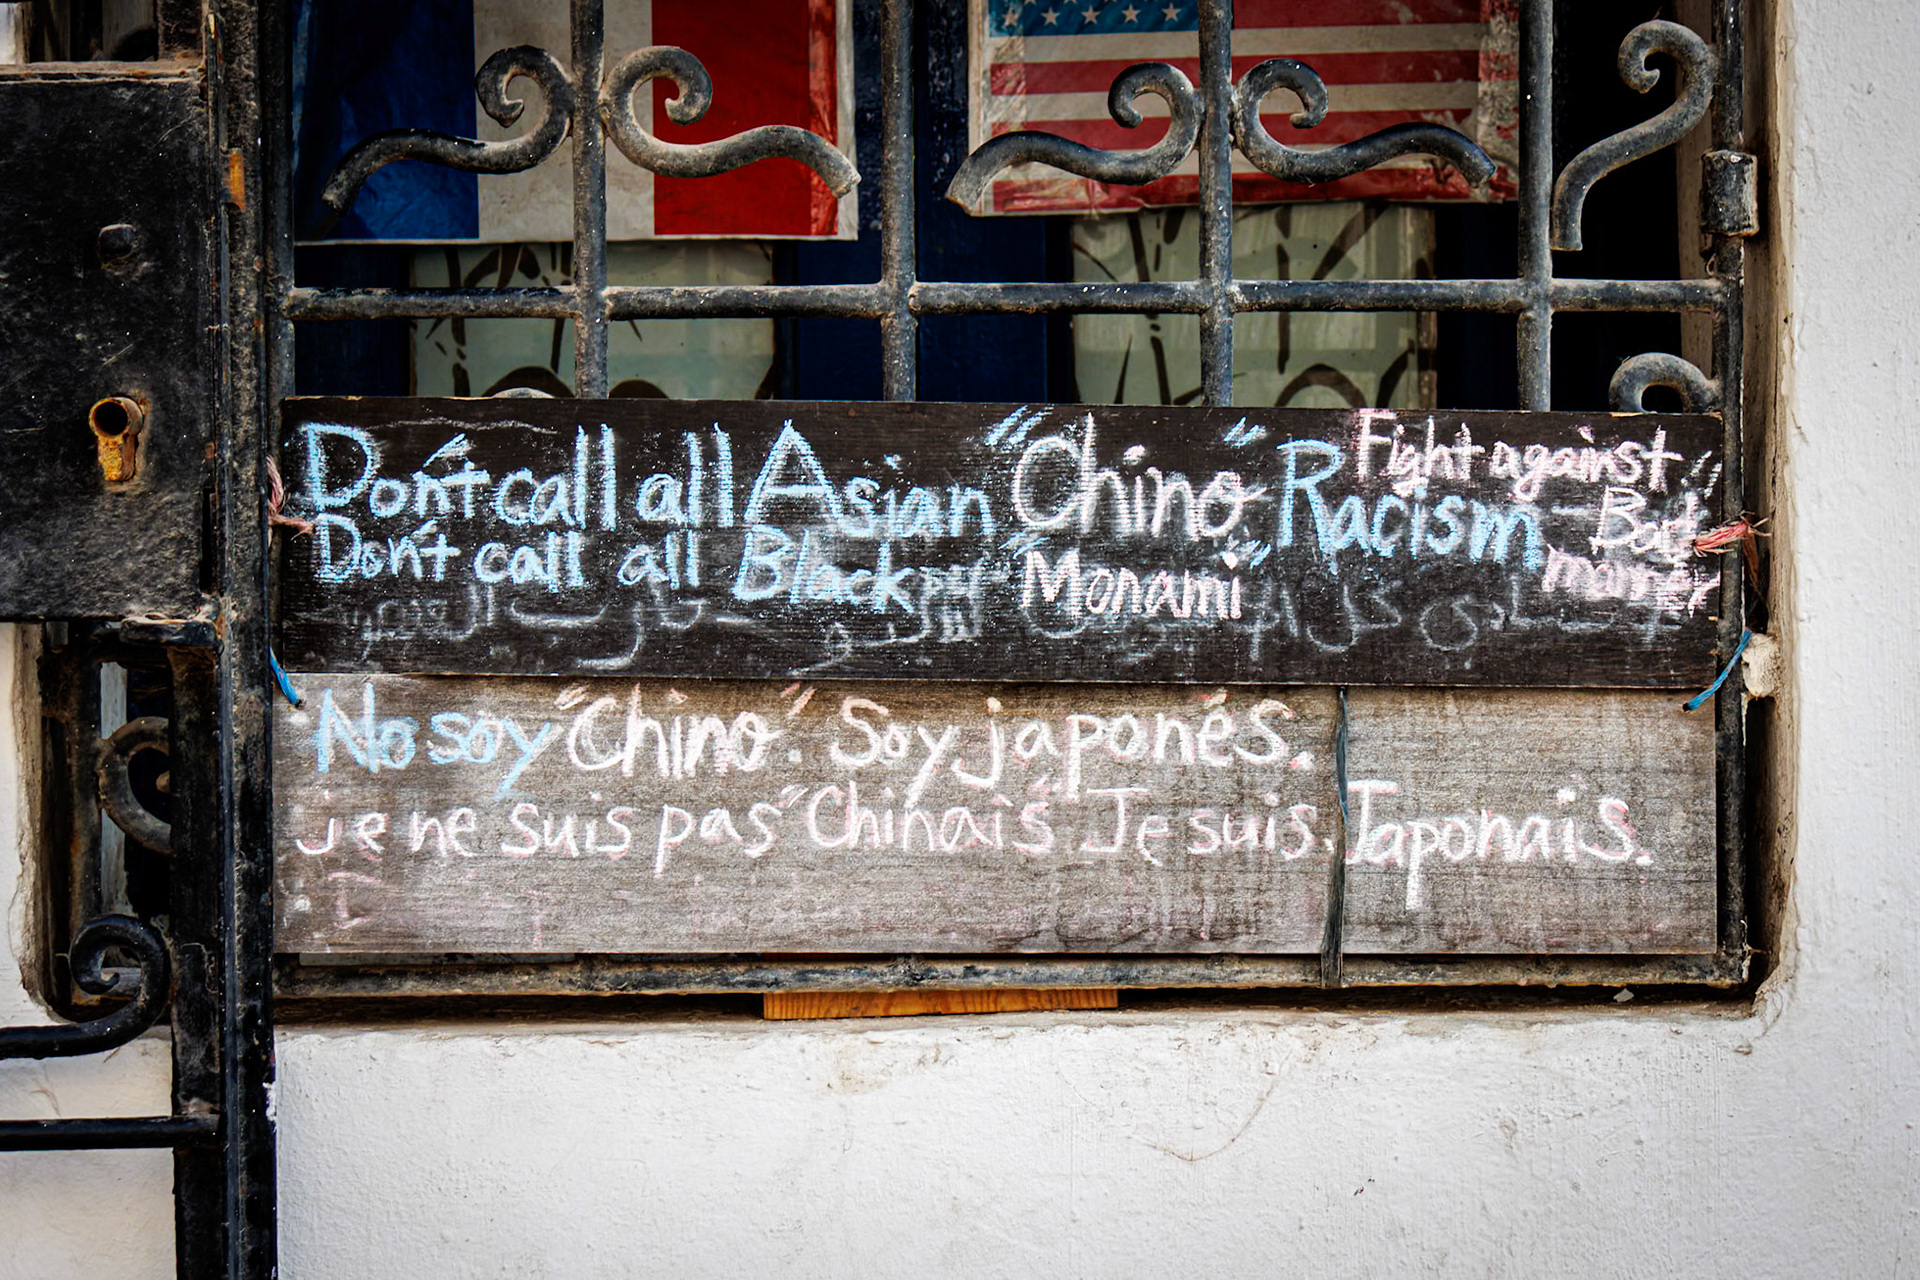 Don't call all Asian "Chino" Racism
Fight against
Bad
manner
Don't call all Black "Monami"
No soy "Chino". Soy japonés.
je ne suis pas "Chinais" Je suis. Japonais.